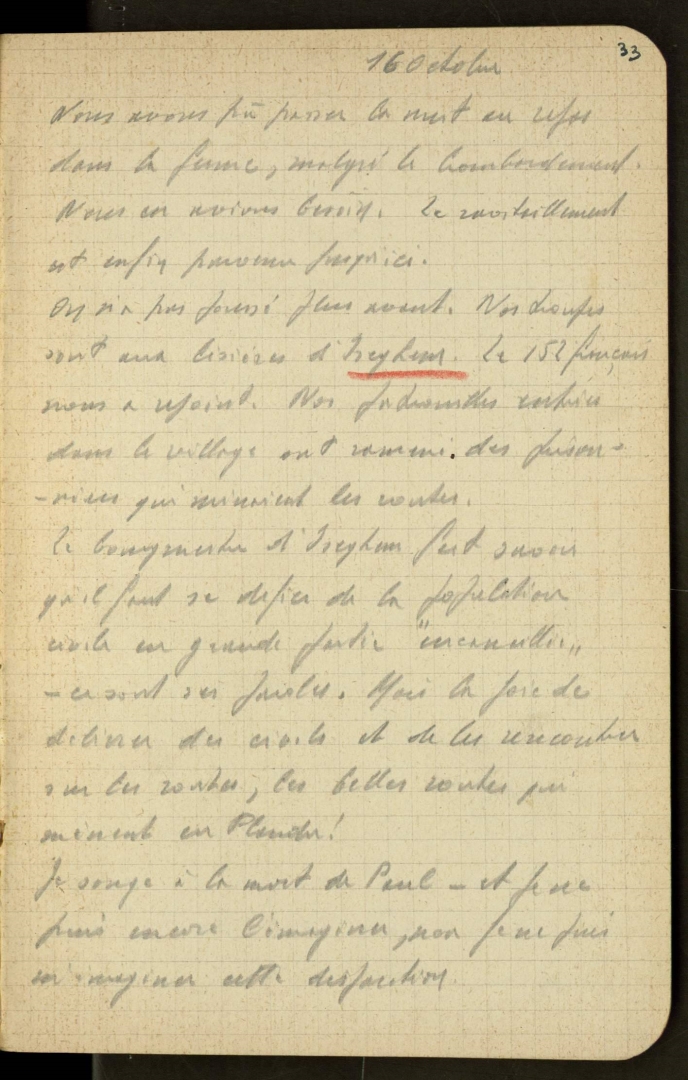 33
16 Octobre
Nous avons pû passer la nuit au repos
dans la ferme, malgré le bombardement.
Nous en avions besoin. Le ravitaillement
est enfin parvenu jusqu'ici.
On n'a pas poussé plus avant. Nos troupes
sont aux lisières d'Iseghem. Le 152 français
nous a rejoint. Nos patrouilles entrées
dans le village ont ramené des prison-
-niers qui minaient les routes.
Le bourgmestre d'Iseghem fait savoir
qu'il faut se défier de la population
civile en grande partie
- ce sont ses paroles. Mais la joie de
délivrer des civils et de les rencontrer
sur les routes, les belles routes qui
mènent en Flandre!
Je songe à la mort de Paul - et je ne
puis encore l'imaginer, non je ne puis
m'imaginer cette disparition.